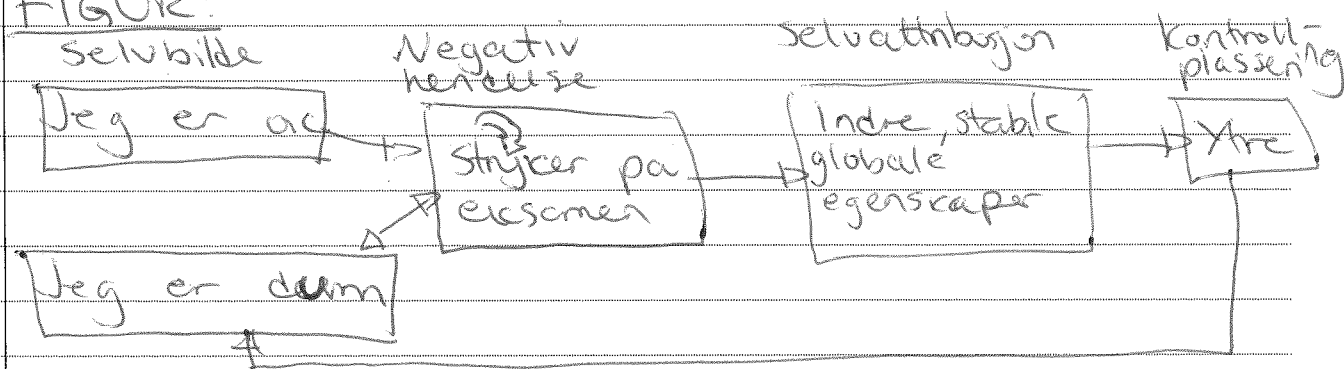 FIGUR.
Selvbilde
Negativ
hendelse
Selvattribusjon
Kontroll-
plassering
Jeg er
Stryker på
eksamen
Indre, stabile
globale
egenskaper
Ytre
Jeg er dum